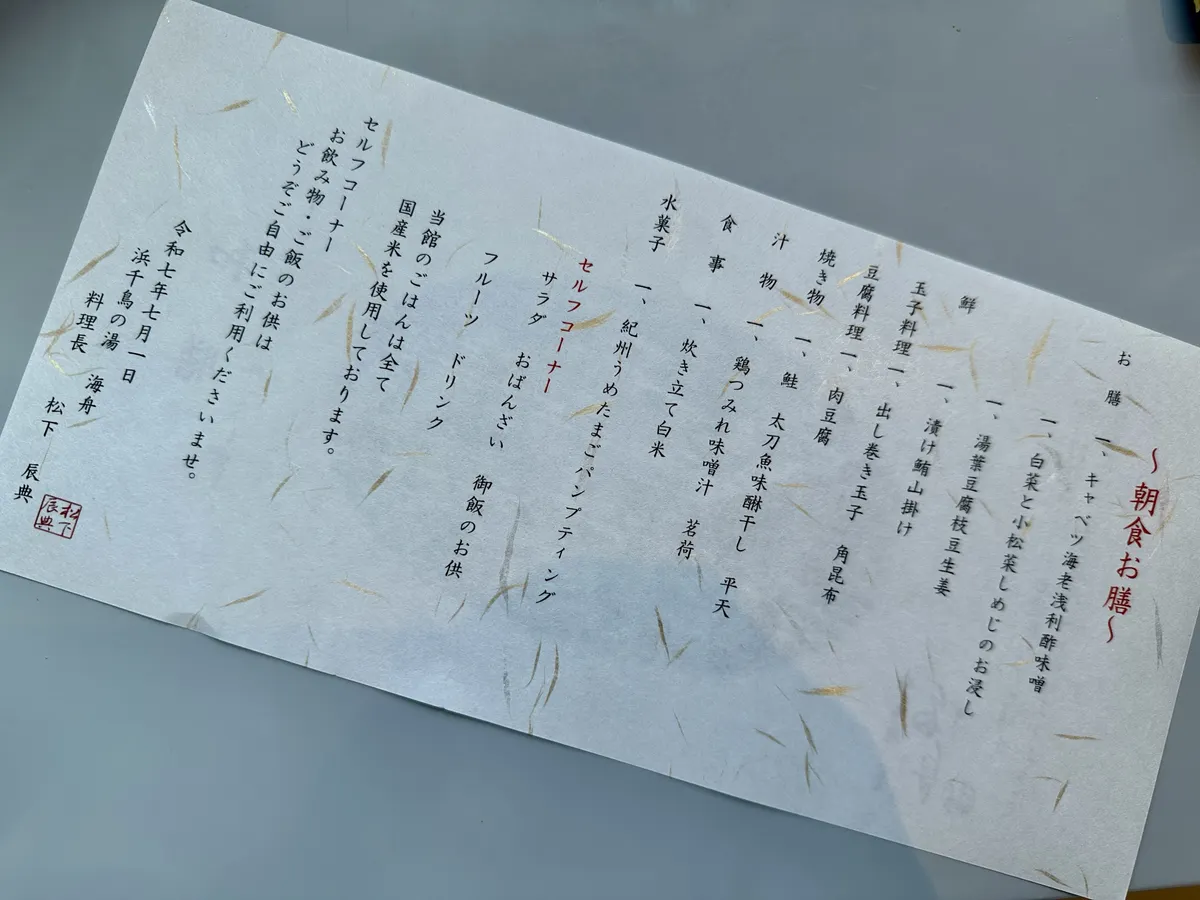 ～朝食お膳～
お膳 一、キャベツ海老浅利酢味噌
一、白菜と小松菜しめじのお浸し
一、湯葉豆腐枝豆生姜
鮮 一、漬け鮪山掛け
玉子料理 一、出し巻き玉子 角昆布
豆腐料理 一、肉豆腐
焼き物 一、鮭 太刀魚味醂干し 平天
汁物 一、鶏つみれ味噌汁 茗荷
食事 一、炊き立て白米
水菓子 一、紀州うめたまごパンプティング
セルフコーナー
サラダ おばんざい 御飯のお供
フルーツ ドリンク
当館のごはんは全て
国産米を使用しております。
セルフコーナー
お飲み物・ご飯のお供は
どうぞご自由にご利用くださいませ。
令和七年七月一日
浜千鳥の湯 海舟
料理長 松下 辰典
松下辰典